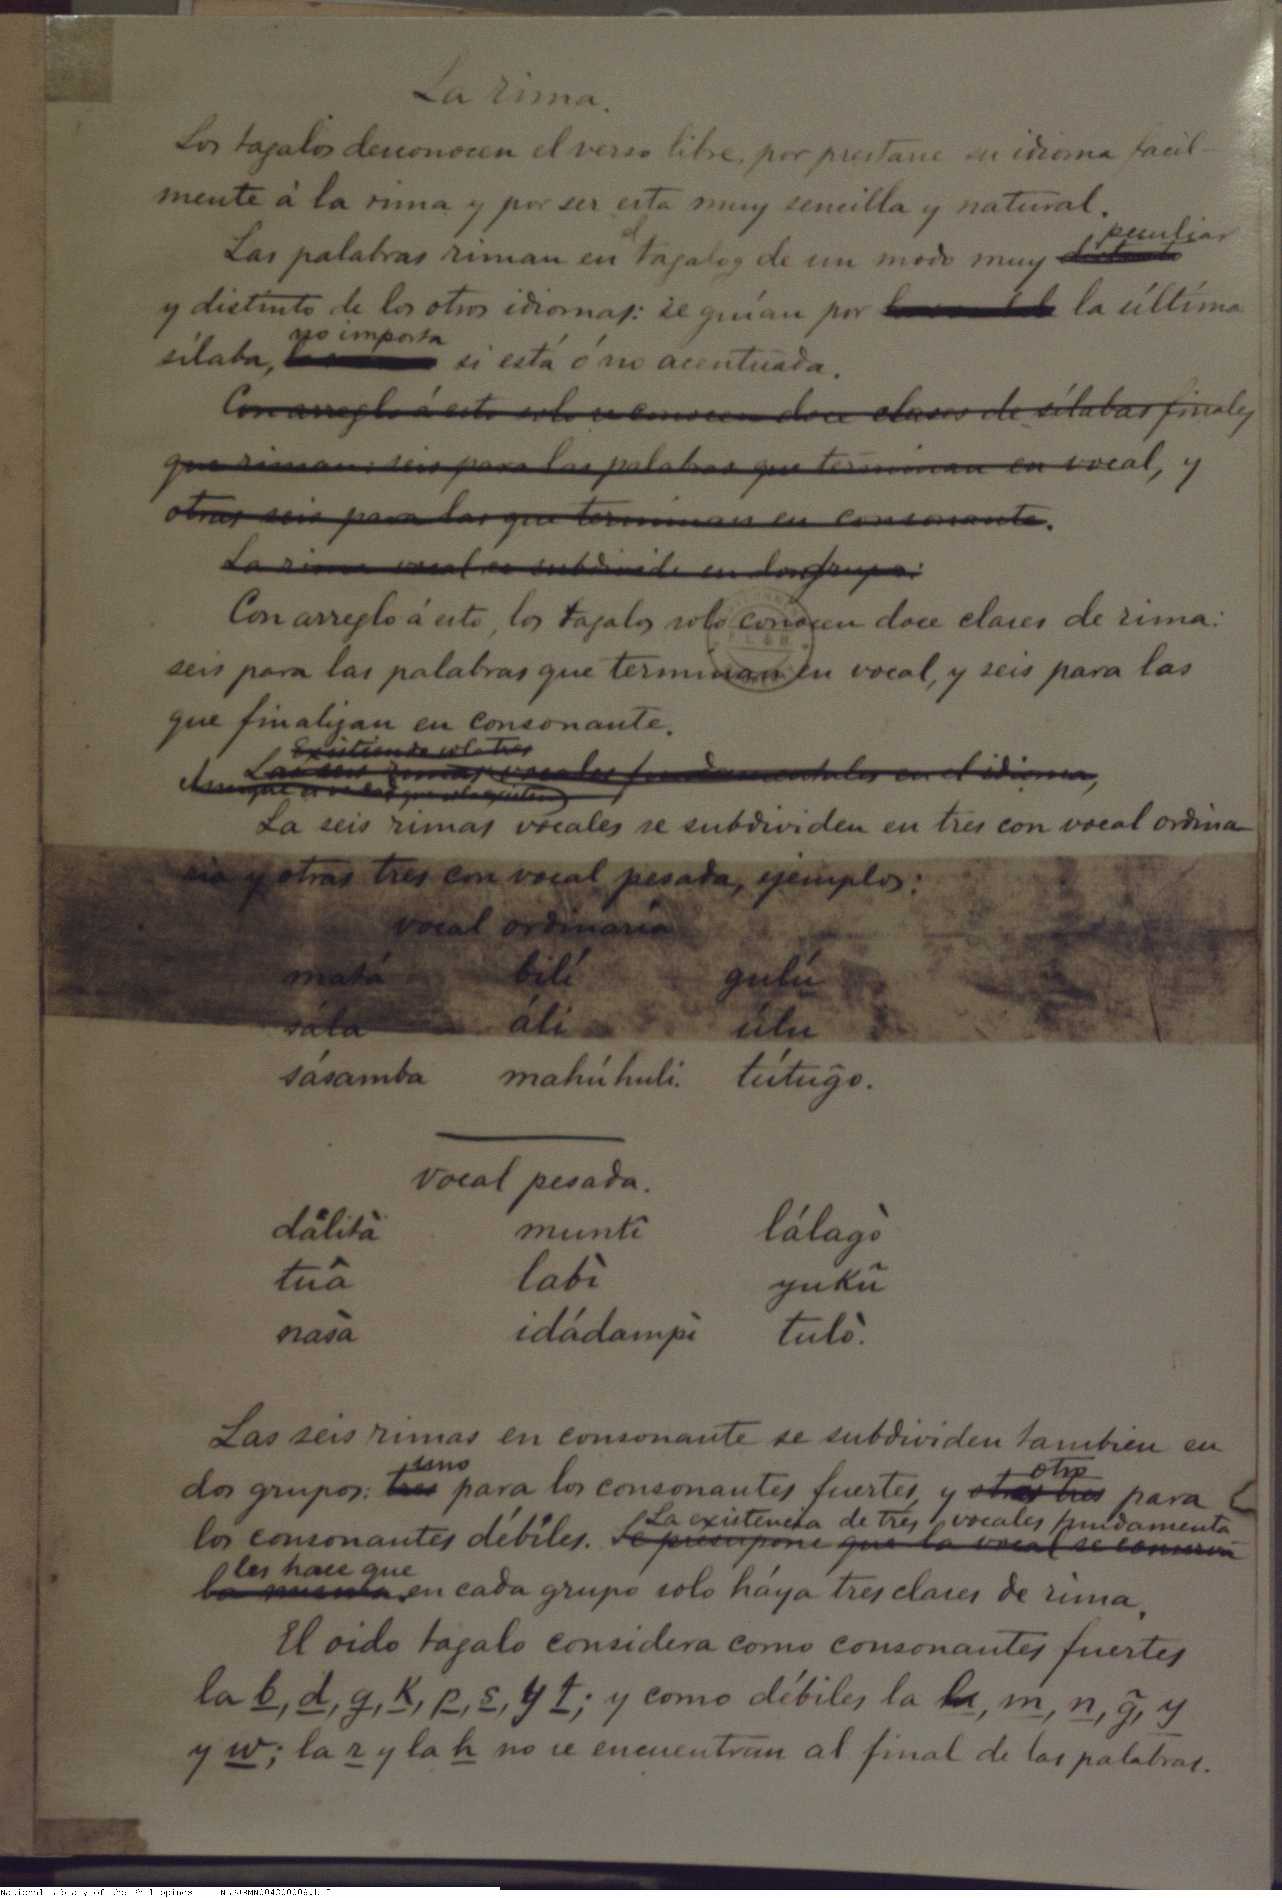 La rima.
Los tagalos desconocen el verso libre, por prestarse su idioma facil-
mente á la rima y por ser esta muy sencilla y natural.
peculiar
Las palabras riman en el tagalog de un modo muy
y distinto de los otros idiomas: se guían por la última
no importa
sílaba, si está ó no acentuada.
Con arreglo á esto solo se conocen doce clases de sílabas finales
que riman: seis para las palabras que terminan en vocal, y
otras seis para las que terminan en consonante.
La rima vocal se subdivide en dos grupos:
Con arreglo á esto, los tagalos solo conocen doce clases de rima:
seis para las palabras que terminan en vocal, y seis para las
que finalizan en consonante.
Existiendo solo tres
Las seis rimas vocales fundamentales en el idioma,
Aunque es verdad que solo existen
La seis rimas vocales se subdividen en tres con vocal ordina
ria y otras tres con vocal pesada, ejemplos:
vocal ordinaria
matá bilí gulú
sála áli úlu
sásamba mahúhuli. tútug̃o.
vocal pesada.
dálità muntî lálagò
tuâ labì yukû
nasà idádampì tulò.
Las seis rimas en consonante se subdividen tambien en
uno otro
dos grupos: tres para los consonantes fuertes, y otras tres para
La existencia de tres vocales fundamenta
los consonantes débiles. Se presupone que la vocal se conserva
les hace que
la misma en cada grupo solo háya tres clases de rima.
El oido tagalo considera como consonantes fuertes
la b, d, g, k, p, s, y t; y como débiles la m, n, g̃, y
y w; la r y la h no se encuentran al final de las palabras.